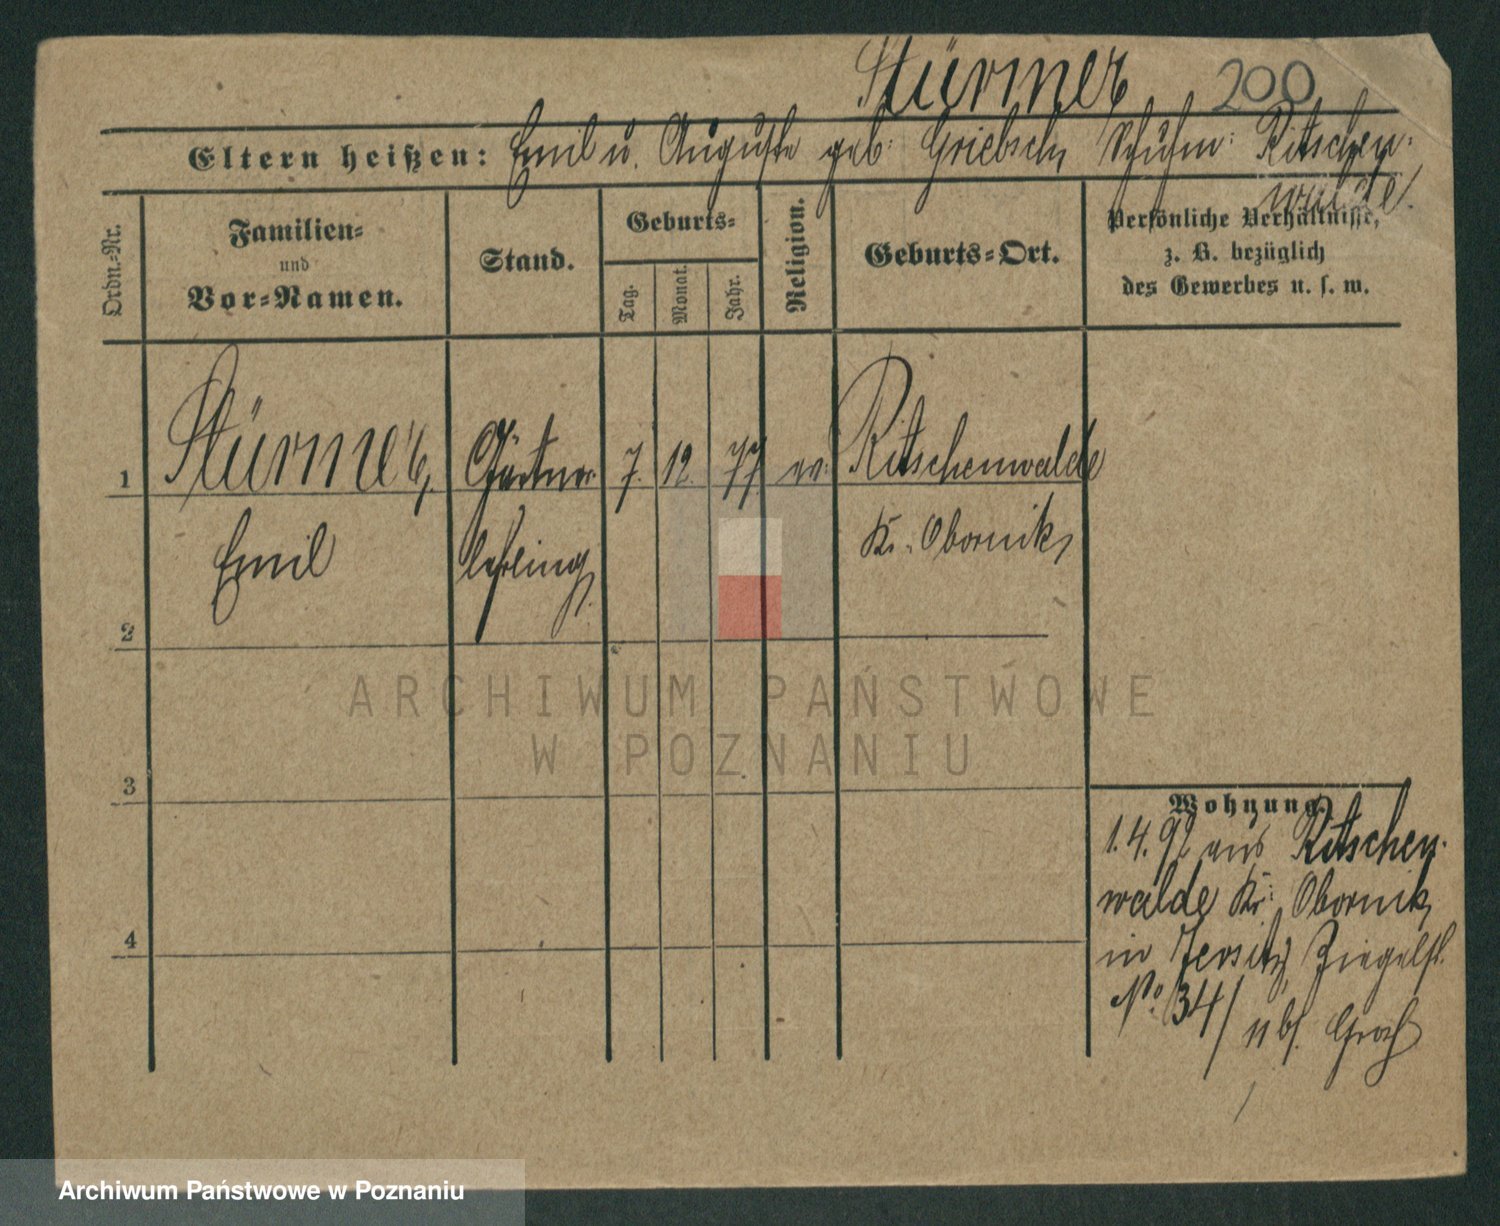 Stürmer 200
Eltern heißen: Emil u. Auguste geb: Griebsch, Schuhm: Ritschen-
walde.
Ordn.-Nr.
Familien-
und
Vor-Namen.
Stand.
Geburts-
Tag.
Monat.
Jahr.
Religion.
Geburts-Ort.
Persönliche Verhältnisse,
z. B. bezüglich
des Gewerbes u. s. w.
1 Stürmer, Gärtner 7. 12. 77. ev: Ritschenwalde
Emil lehrling. Kr. Obornik
2
3
4
ARCHIWUM PAŃSTWOWE
W POZNANIU
Wohnung.
1.4.92 aus Ritschen-
walde Kr: Obornik
in Jersitz, Ziegelst.
No. 34/
Archiwum Państwowe w Poznaniu